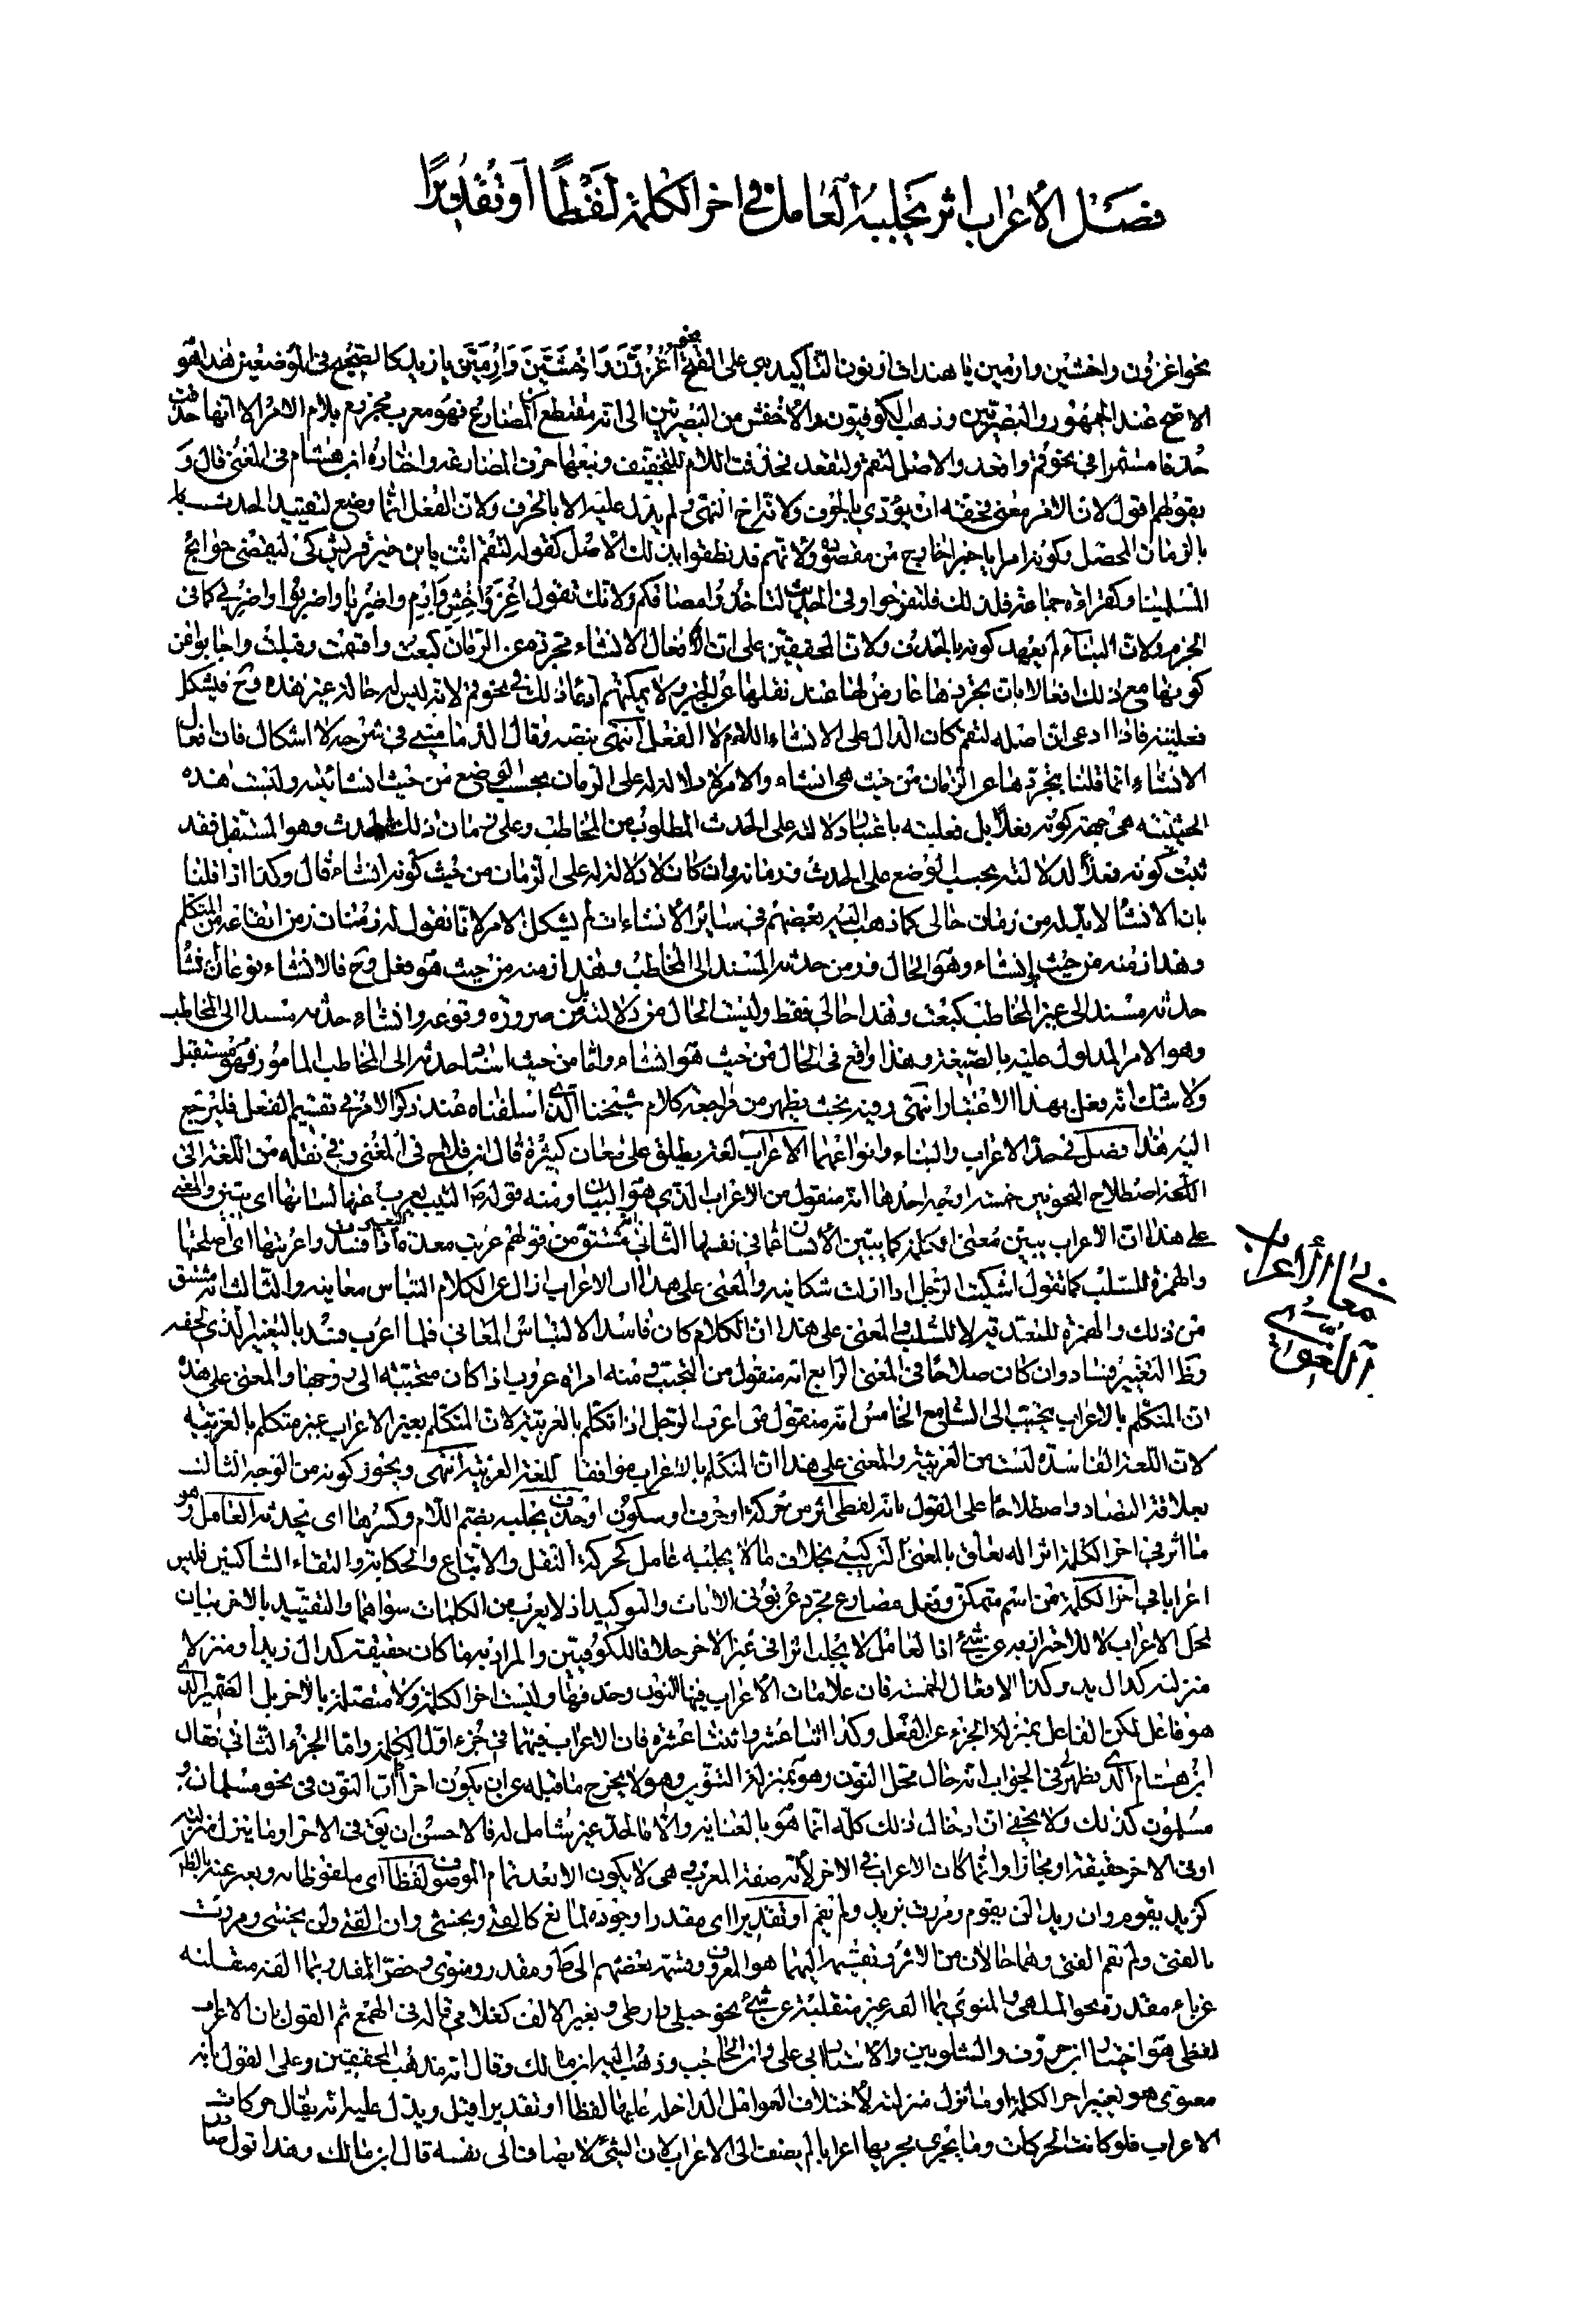 فصل الاعراب اثر يجلبه العامل في اخر الكلمة لفظا او تقديرا
نحو اغزون واخشين وارمين يا هندات او نون التأكيد بني على الفتح نحو اغزون واخشين وارمين يا زيد كالصحيح في الموضعين هذا هو
الاصح عند الجمهور والبصريين وذهب الكوفيون والاخفش من البصريين الى انه مقتطع من المضارع فهو معرب مجزوم بلام الامر الا انها حذفت
حذفا مستمرا في نحو قم واقعد والاصل لتقم ولتقعد فحذفت اللام للتخفيف وتبعها حرف المضارعة واختاره ابن هشام في المغني قال و
بقولهم اقول لان الامر معنى فحقه ان يؤدي بالحرف ولانه اخ النهي ولم يدل عليه الا بالحرف ولان الفعل انما وضع لتقييد الحدث
بالزمان المحصل وكونه امرا او خبرا خارج من مقصوده ولانهم قد نطقوا بذلك الاصل كقوله لتقم انت يا ابن خير قريش كي لتقضي حوائج
المسلمينا وكقراءة جماعة فبذلك فلتفرحوا وفي الحديث لتأخذوا مصافكم ولانك تقول اغز واخش وارم واضربا واضربوا واضربي كما في
الجزم ولان البناء لم يعهد كونه بالحذف ولان المحققين على ان افعال الانشاء مجردة عن الزمان كبعت واقسمت وقبلت واجابوا عن
كونها مع ذلك افعالا بان تجردها عارض لها عند نقلها عن الخبر ولا يمكنهم ادعاء ذلك في نحو قم لانه ليس له حالة غير هذه وح فيشكل
فعليته فاذا ادعي ان اصله لتقم كان الدال على الانشاء اللام لا الفعل انتهى بنصه وقال الدماميني في شرحه لا اشكال فان افعال
الانشاء انما قلنا بتجردها عن الزمان من حيث هي انشاء والامر لا دلالة له على الزمان بحسب الوضع من حيث انشائيته وليست هذه
الحيثية هي جهة كونه فعلا بل فعليته باعتبار دلالته على الحدث المطلوب من المخاطب وعلى زمان ذلك الحدث وهو المستقبل فقد
ثبت كونه فعلا لدلالته بحسب الوضع على الحدث وزمانه وان كان لا دلالة له على الزمان من حيث كونه انشاء قال وكذا اذا قلنا
بان الانشاء لا بد له من زمان حالي كما ذهب اليه بعضهم في سائر الانشاءات لم يشكل الامر لانا نقول له زمنان زمن ايقاعه من المتكلم
وهذا زمنه من حيث انشاء وهو الحال وزمن حدثه المسند الى المخاطب وهذا زمنه من حيث هو فعل وح فالانشاء نوعان انشاء
حدثه مسند الى غير المخاطب كبعت وهذا حالي فقط وليست الحال من دلالته بل من ضرورة وقوعه وانشاء حدثه مسند الى المخاطب
وهو الامر المدلول عليه بالصيغة وهذا واقع في الحال من حيث هو انشاء واما من حيث اسناد حدثه الى المخاطب المامور فهو مستقبل
ولا شك انه فعل بهذا الاعتبار انتهى وفيه بحث يظهر من مراجعة كلام شيخنا الذي اسلفناه عند ذكر الامر في تقسيم الفعل فليرجع
اليه هذا فصل في حد الاعراب والبناء وانواعهما الاعراب لغة يطلق على معان كثيرة قال ابن فلاح في المغني وفي نقله من اللغة الى
اصطلاح النحويين خمسة اوجه احدها انه منقول من الاعراب الذي هو البيان ومنه قوله الثيب يعرب عنها لسانها اي يبين والمعنى
على هذا ان الاعراب يبين معنى الكلمة كما يبين الانسان عما في نفسه الثاني انه مشتق من قولهم عربت معدة اذا فسدت واعربتها اي اصلحتها
والهمزة للسلب كما تقول اشكيت الرجل اذا ازلت شكايته والمعنى على هذا ان الاعراب ازال عن الكلام التباس معانيه والثالث انه مشتق
من ذلك والهمزة للتعدية لا للسلب والمعنى على هذا ان الكلام كان فاسدا لالتباس المعاني فلما اعرب فسد بالتغيير الذي لحقه
وظ التغيير فساد وان كان صلاحا في المعنى الرابع انه منقول من التحبب ومنه امراة عروب اذا كان متحببة الى زوجها والمعنى على هذا
ان المتكلم بالاعراب يتحبب الى السامع الخامس انه منقول من اعرب الرجل اذا تكلم بالعربية لان المتكلم بغير الاعراب غير متكلم بالعربية
لان اللغة الفاسدة ليست من العربية والمعنى على هذا ان المتكلم بالاعراب موافقا للغة العربية انتهى ويجوز كونه من الوجه الثالث
بعلاقة التضاد واصطلاحا على القول بانه لفظي اثر من حركة او حرف او سكون او حذف يجلبه بضم اللام وكسرها اي يحدثه العامل وهو
ما اثر في اخر الكلمة اثرا له تعلق بالمعنى التركيبي بخلاف ما لا يجلبه عامل كحركة النقل والاتباع والحكاية والتقاء الساكنين فليس
اعرابا في اخر الكلمة من اسم متمكن وفعل مضارع مجرد عن نوني الاناث والتوكيد اذ لا يعرب من الكلمات سواهما والتقييد بالاخر بيان
لمحل الاعراب لا للاحتراز به عن شيء اذ العامل لا يجلب اثرا في غير الاخر خلافا للكوفيين والمراد به ما كان حقيقة كدال زيد او منزلا
منزلته كدال يد وكذا الافعال الخمسة فان علامات الاعراب فيها النون وحذفها وليست اخر الكلمة ولا متصلة بالاخر بل الضمير الذي
هو فاعل لكن الفاعل بمنزلة الجزء من الفعل وكذا اثنا عشر واثنتا عشرة فان الاعراب فيهما في جزء اول الكلمة واما الجزء الثاني فقال
ابن هشام الذي يظهر لي في الجواب انه حال محل النون وهو بمنزلة التنوين وهو لا يخرج ما قبله عن ان يكون اخرا لان النون في نحو مسلمان و
مسلمون كذلك ولا يخفى ان ادخال ذلك كله انما هو بالعناية والا فالحد غير شامل له فالاحسن ان يق في الاخر او ما ينزل منزلته
او في الاخر حقيقة او مجازا وانما كان الاعراب في الاخر لانه صفة المعرب وهي لا يكون الا بعد تمام الموصوف لفظا اي ملفوظا به ويعبر عنه بالظاهر
كزيد يقوم وان زيدا لن يقوم ومررت بزيد ولم يقم او تقديرا اي مقدرا وجوده لمانع كالفتى ويخشى وان الفتى ولن يخشى ومررت
بالفتى ولم تقم الفتى وهما حالان من الاثر وتقسيمه اليهما هو المعروف وقسمه بعضهم الى ظاهر ومقدر ومنوي وخص المقدر بما الفه منقلبة
عن ياء مقدرة نحو الملهى والمنوي بما الفه غير منقلبة عن شيء نحو حبلى وارطى وبغير الالف كغلامي قاله في الهمع ثم القول بان الاعراب
لفظي هو اختيار ابن خروف والشلوبين والاستاد ابي علي وابن الحاجب وذهب اليه ابن مالك وقال انه مذهب المحققين وعلى القول بانه
معنوي هو تغيير اخر الكلمة او ما نزل منزلته لاختلاف العوامل الداخلة عليها لفظا او تقديرا قيل ويدل عليه انه يقال حركات
الاعراب فلو كانت الحركات وما يجري مجريها اعرابا لم يضف الى الاعراب لان الشيء لا يضاف الى نفسه قال ابن مالك وهذا قول صادر
في معاني الأعراب
اللغوي